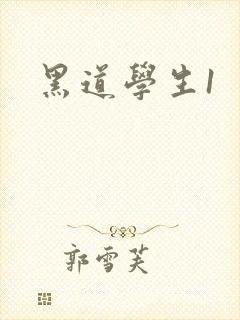 黑道學生1
郭雪芙